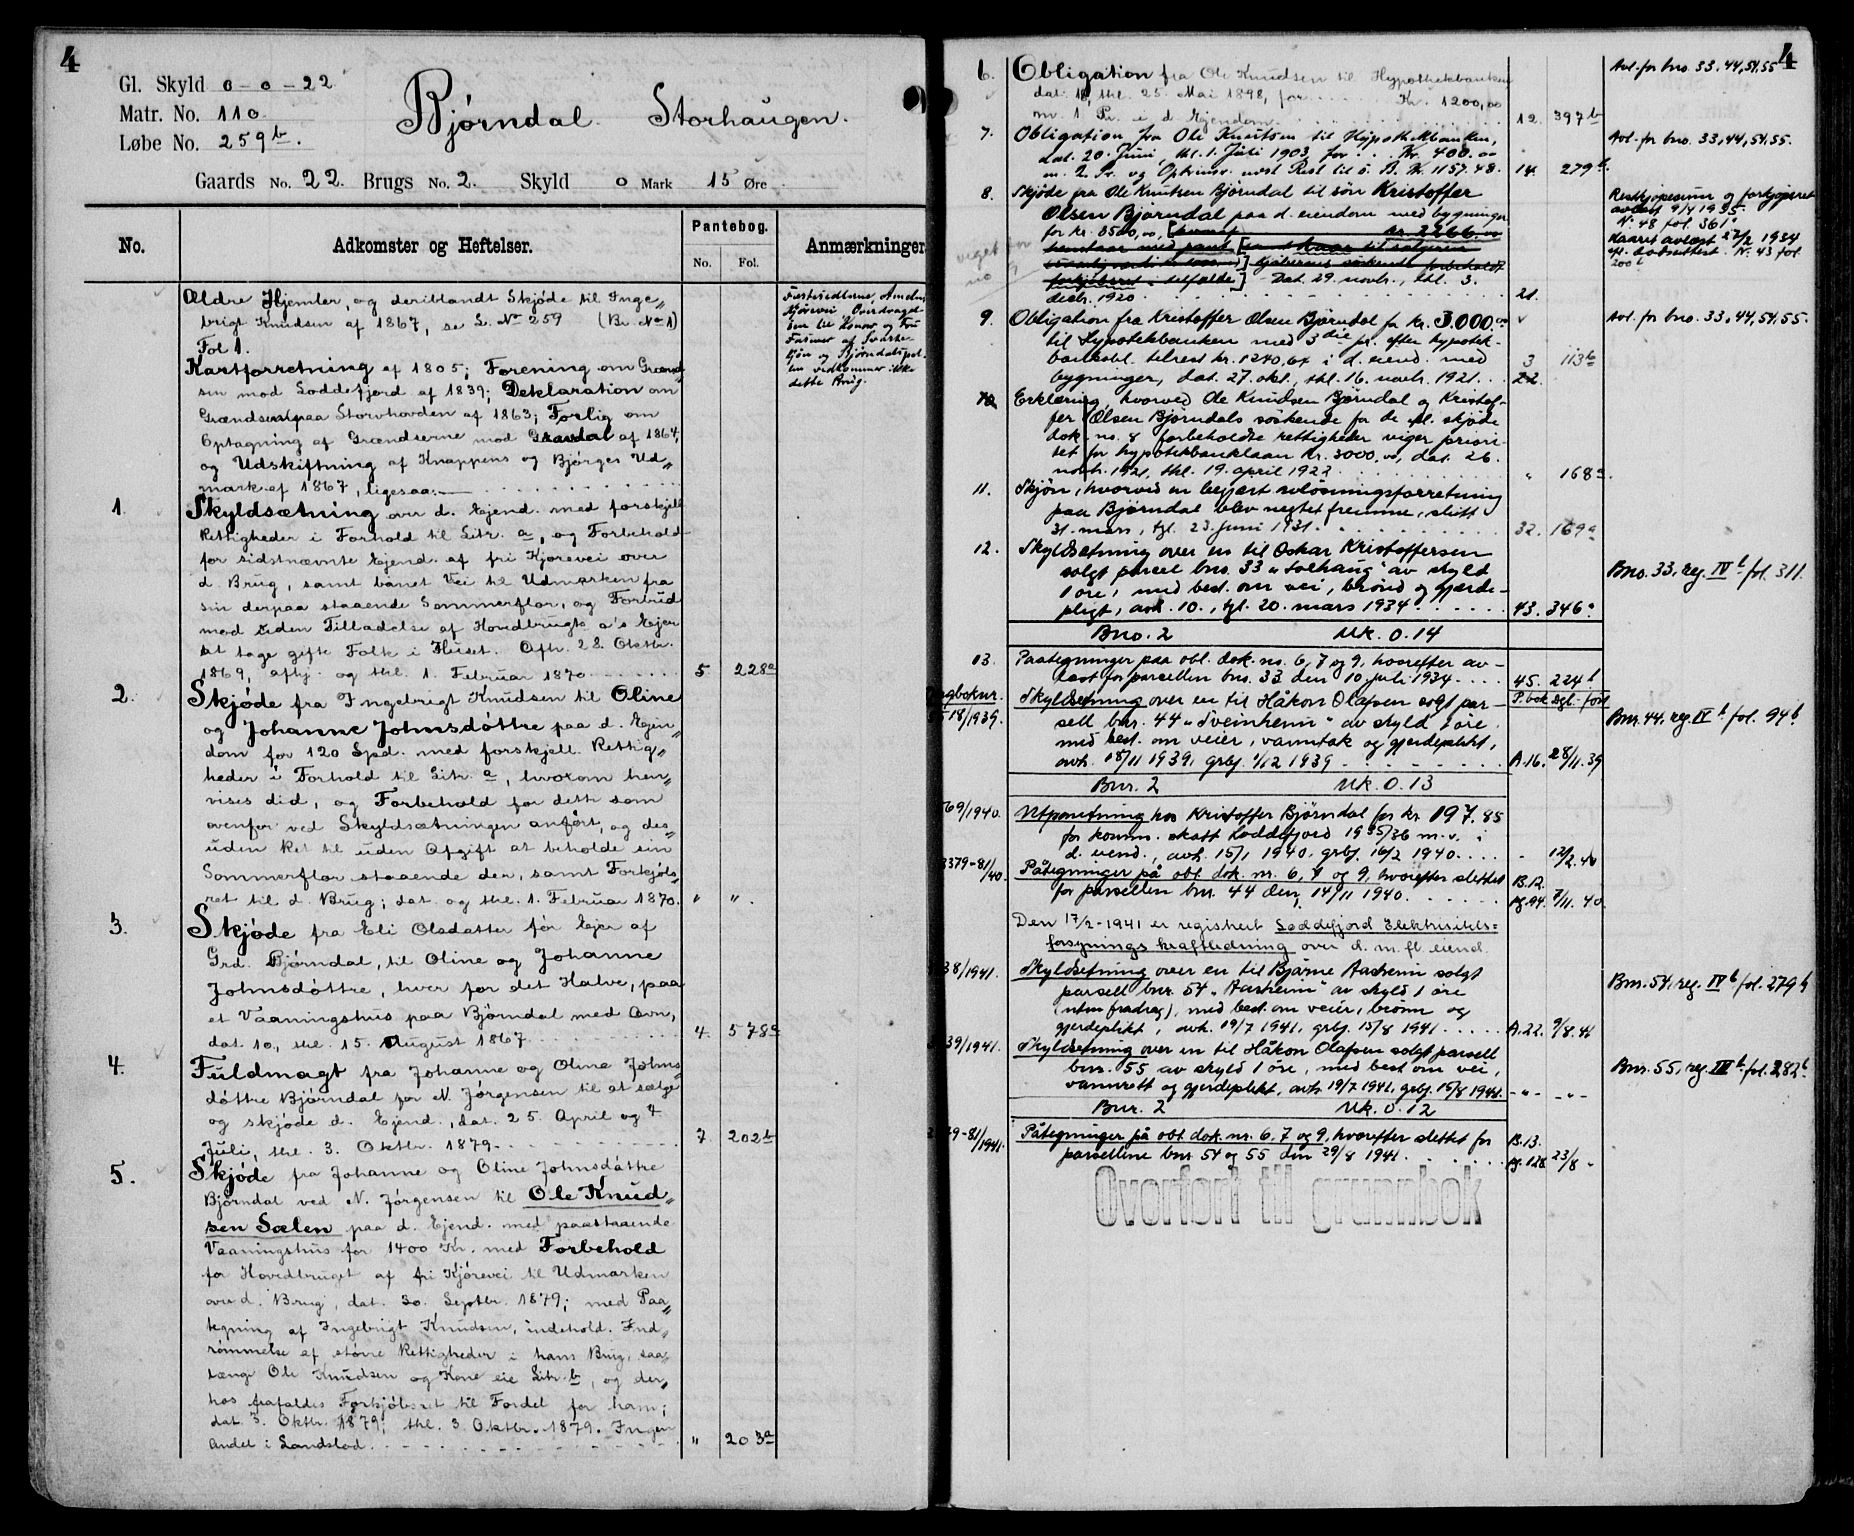 4
Gl. Skyld 0-0-22
Matr. No. 110
Løbe No. 259b.
Bjørndal. Storhaugen.
Gaards No. 22. Brugs No. 2. Skyld 0 Mark 15 Øre
No. Adkomster og Heftelser. Pantebog. No. Fol. Anmærkninger
Ældre Hjemler, og deriblandt Skjøde til Inge„
brigt Knudsen af 1867, se L. No 259 (Br. No 1)
Fol 1.
Kartforretning af 1805; Forening om Grænd„
sen mod Loddefjord af 1839; Deklaration om
Grændsen paa Storhovden af 1863; Forlig om
Optagning af Grændserne mod Gravdal af 1864,
og Udskiftning af Knappens og Bjørges Ud„
mark af 1867, ligesaa.
Fæstesedlerne,
Kjørevei, Overdragel„
sen til Konow og Fru
af Svarte„
tjøn og Bjørndalspol„
len vedkommer ikke
dette Brug.
1. Skyldsætning over d. Ejend. med forskjell
Rettigheder i Forhold til Litr. a, og Forbehold
for sidstnævnte Ejend. af fri Kjørevei over
d. Brug, samt banet Vei til Udmarken fra
sin derpaa staaende Sommerflor, og Forbud
mod uden Tilladelse af Hovdbrugets a's Ejer
at tage gifte Folk i Huset. Afh. 28. Oktbr.
1869, afhj. og thl. 1. Februar 1870 5 228a
2. Skjøde fra Ingebrigt Knudsen til Oline
og Johanne Johnsdøttre paa d. Ejen„
dom for 120 Spd. med forskjell. Rettig„
heder i Forhold til Litr. a, hvorom hen„
vises did, og Forbehold for dette som
ovenfor ved Skyldsætningen anført, og des„
uden Ret til uden Afgift at beholde sin
Sommerflor staaende der, samt Forkjøbs„
ret til d. Brug; dat. og thl. 1. Februar 1870. " ".
3. Skjøde fra Eli Olsdatter før Ejer af
Grd. Bjørndal, til Oline og Johanne
Johnsdøttre, hver for det Halve, paa
et Vaaningshus paa Bjørndal med Ovn,
dat. 10., thl. 15. August 1867. 4. 578a
4. Fuldmagt fra Johanne og Oline Johns„
døttre Bjørndal for N. Jørgensen til at sælge
og skjøde d. Ejend., dat. 25. April og 4.
Juli, thl. 3. Oktbr. 1879 7. 202b
5. Skjøde fra Johanne og Oline Johnsdøttre
Bjørndal ved N. Jørgensen til Ole Knud„
sen Sælen paa d. Ejend. med paastaaende
Vaaningshus for 1400 Kr. med Forbehold
for Hovedbruget af fri Kjørevei til Udmarken
over d. Brug, dat. 30. Septbr. 1879; med Paa„
tegning af Ingebrigt Knudsen, indehold. Ind„
rømmelse af større Rettigheder i hans Brug, saa„
længe Ole Knudsen og Kone eie Litr. b, og der„
hos frafaldes Forkjøbsret til Fordel for ham;
dat. 3. Oktbr. 1879; thl. 3. Oktbr. 1879. Ingen
Andel i Landslod. " 203a
4
6. Obligation fra Ole Knudsen til Hypothekbanken
dat. 18, thl. 25. Mai 1898, for Kr. 1200,00
m. 1 Pr. i d. Ejendom. 12. 397b
Avl. for bno. 33, 44, 54, 55
7. Obligation fra Ole Knutsen til Hypothekbanken,
dat. 20. Juni, thl. 1. Juli 1903, for Kr. 400.00
m. 2. Pr. og Optrinsr. næst Rest til s. B. Kr. 1157.48. 14. 279b
Avl. for bno. 33, 44, 54, 55.
8. Skjøde fra Ole Knutsen Bjørndal til søn Kristoffer
Olsen Bjørndal paa d. eiendom med bygninger
for kr. 3500,00, kr. 2266.00
Dat. 29. novbr., thl. 3.
decbr. 1920 21.
Restkjøpesum og forkjøpsret
avlæst 9/4 1935
No. 48 fol. 361a
Kaaret avlæst 27/2 1934
efl. dødsattest. No. 43 fol.
200b
9. Obligation fra Kristoffer Olsen Bjørndal for kr. 3.000.00
til Hypotekbanken med 3die pr. efter hypotek-
bankobl. tilrest kr. 1240,64 i d. eiend. med
bygninger, dat. 27. okt., thl. 16. novbr. 1921. 3 22. 113b
Avl. for bno. 33, 44, 54, 55.
10. Erklæring, hvorved Ole Knudsen Bjørndal og Kristof-
fer Olsen Bjørndals søskende for de efl. skjøde
dok. no. 8 forbeholdte rettigheder viger priori-
tet for hypotekbanklaan kr. 3000,00, dat. 26.
novbr. 1921, thl. 19. april 1922 " 168a.
11. Skjøn, hvorved en begjært avløsningsforretning
paa Bjørndal blev negtet fremme, slutt
31. mars, tgl. 23. juni 1931. 32. 169a
12. Skyldsetning over en til Oskar Kristoffersen
solgt parcel bno. 33 „Solhaug" av skyld
1 øre, med best. om vei, brønd og gjerde-
pligt, avh. 10., tgl. 20. mars 1934 43. 346a
Bno. 33, reg. IVb fol. 311.
Bno. 2 Mk. 0.14
13. Paategninger paa obl. dok. no. 6, 7 og 9, hvorefter av-
læst for parsellen bno. 33 den 10. juli 1934. 45. 224b
P.bok dgl.-ført
18/1939. Skyldsetning over en til Håkon Olafsen solgt par-
sell bnr. 44 „Sveinheim" av skyld 1 øre,
med best. om veier, vanntak og gjerdeplikt,
avh. 15/11 1939, grbf. 1/12 1939 A.16. 28/11.39
Bnr. 44, reg. IVb fol. 94b
Bnr. 2 Mk. 0.13
569/1940. Utpantning hos Kristoffer Bjørndal for kr. 197.85
for komm. skatt Loddefjord 1935/36 m.v. i
d. eiend., avh. 15/1 1940, grbf. 16/2 1940 - 12/2.40
3379-81/40. Påtegninger på obl. dok. nr. 6, 7 og 9, hvorefter slettet
for parsellen bnr. 44 den 14/11 1940. B.12. pg.94. 7/11.40
Den 17/2-1941 er registrert Loddefjord Elektrisitets=
forsynings kraftledning over d. m.fl. eiend.
38/1941. Skyldsetning over en til Bjarne Aasheim solgt
parsell bnr. 54 „Aasheim" av skyld 1 øre
(uten fradrag), med best. om veier, brønn og
gjerdeplikt, avh. 19/7 1941, grbf. 15/8 1941. A.22. 9/8.41
Bnr. 54, reg. IVb fol. 279b
39/1941. Skyldsetning over en til Håkon Olafsen solgt parsell
bnr. 55 av skyld 1 øre, med best om vei,
vannrett og gjerdeplikt, avh. 19/7 1941, grbf. 15/8 1941. -"- -"-
Bnr. 55, reg. IVb fol. 282b
Bnr. 2 Mk. 0.12
79-81/1941. Påtegninger på obl. dok. nr. 6, 7 og 9, hvorefter slettet for
parsellene bnr. 54 og 55 den 29/8 1941. B.13. pg.128 23/8 -
Overført til grunnbok